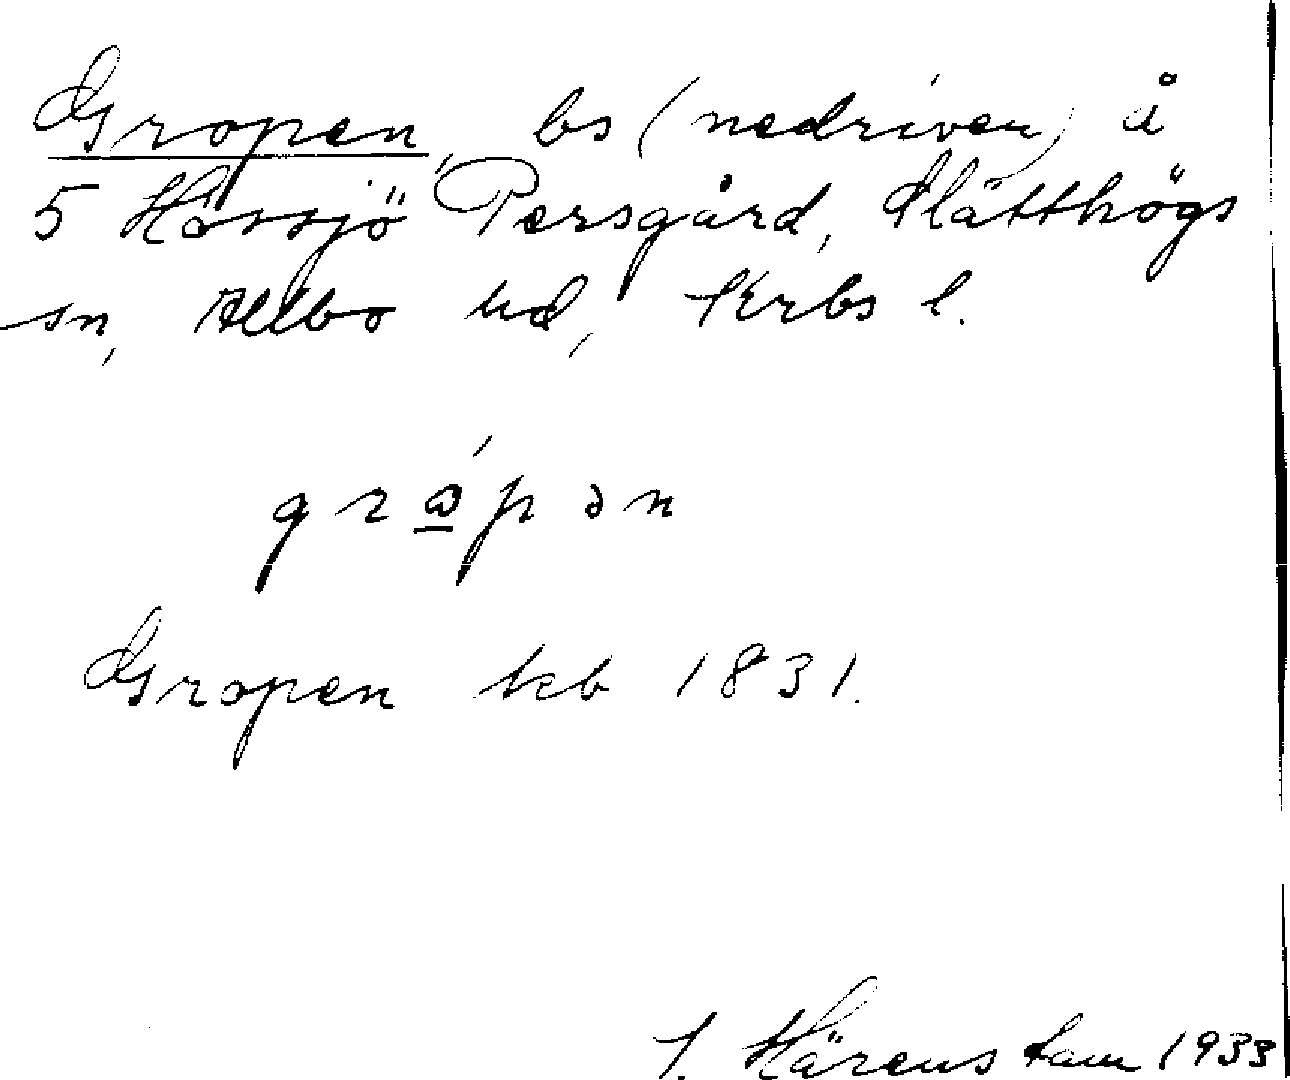 Gropen, bs (nedriven) å
5 Hössjö Persgård, Slätthögs
sn, Allbo hd, Krbs l.
grώ̲pən
Gropen kb 1831.
J. Härenstam 1933